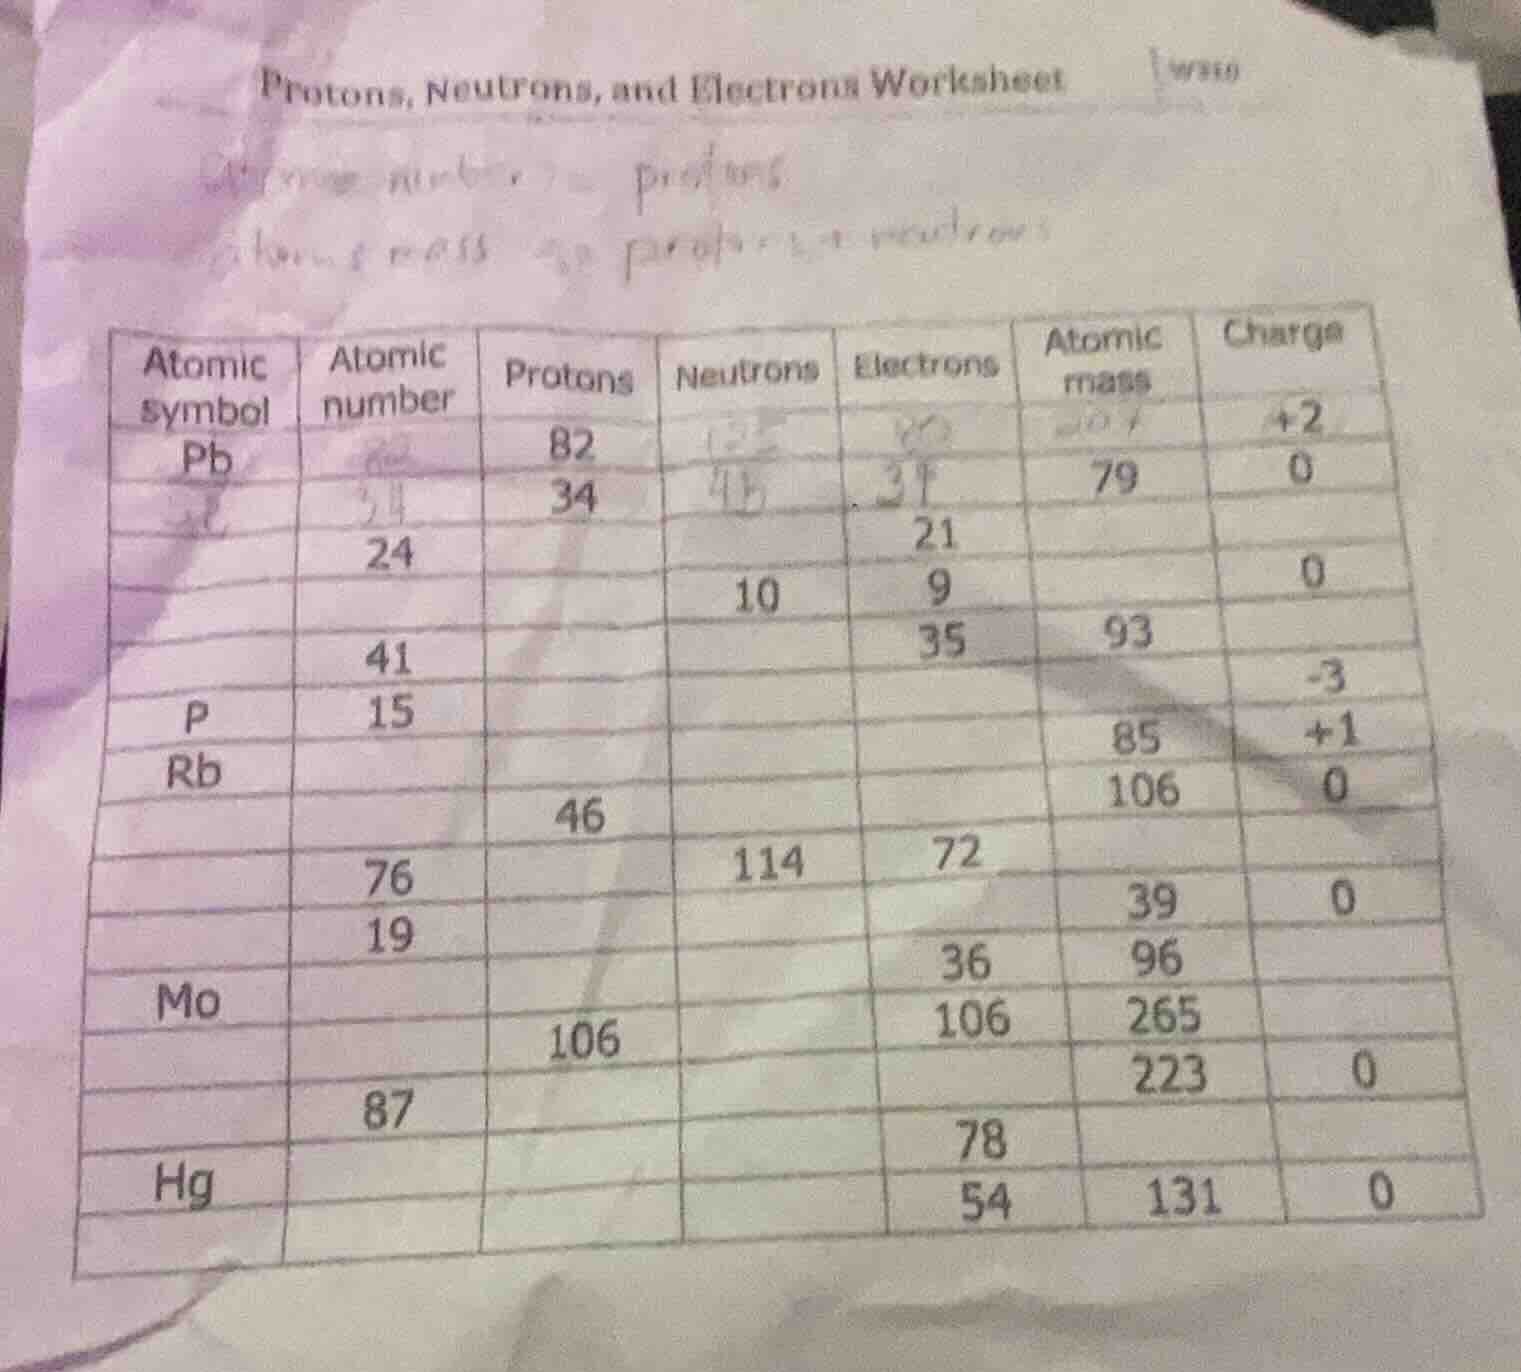 Protons, Neutrons, and Electrons Worksheet
number = protons
mass protons + neutrons
Atomic symbol Atomic number Protons Neutrons Electrons Atomic mass Charge
Pb 82 80 +2
34 34 45 34 79 0
24 21
10 9 0
41 35 93
P 15 -3
Rb 85 +1
46 106 0
76 114 72
19 39 0
Mo 36 96
106 106 265
87 223 0
Hg 78
54 131 0